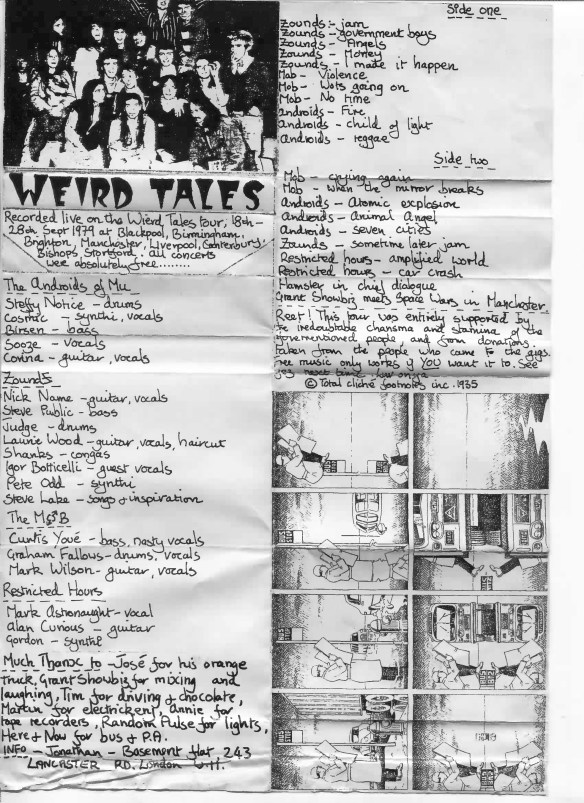 WEIRD TALES
Recorded live on the Wierd Tales tour, 18th -
28th Sept 1979 at Blackpool, Birmingham,
Brighton, Manchester, Liverpool, Canterbury,
Bishops Stortford. all concerts
were absolutely free........
The Androids of Mu
Steffy Notice - drums
Cosmic - synthi, vocals
Birsen - bass
Sooze - vocals
Corina - guitar, vocals
Zounds
Nick Name - guitar, vocals
Steve Public - bass
Judge - drums
Laurie Wood - guitar, vocals, haircut
Shanks - congas
Igor Botticelli - guest vocals
Pete Odd - synthi
Steve Lake - songs & inspiration
The
Curtis Youé - bass, nasty vocals
Graham Fallows - drums, vocals
Mark Wilson - guitar, vocals
Restricted Hours
Mark Astronaught - vocal
Alan Curious - guitar
Gordon - synthi
Much Thanx to - José for his orange
truck, Grant Showbiz for mixing and
laughing, Tim for driving & chocolate,
Martin for electrickery, annie for
tape recorders, Random Pulse for lights,
Here & Now for bus & P.A.
INFO - Jonathan - Basement flat 243
LANCASTER RD. London W.11.
Side one
Zounds :- jam
Zounds - government boys
Zounds - Angels
Zounds - Money
Zounds - I make it happen
Mob - Violence
Mob - Wots going on
Mob - No time
Androids - Fire
Androids - child of light
Androids - reggae
Side two
Mob - crying again
Mob - when the mirror breaks
Androids - Atomic explosion
Androids - animal angel
Androids - seven cities
Zounds - sometime later jam
Restricted hours - amplified world
Restricted hours - car crash
Hamster in chief dialogue
Grant Showbiz meets Space Wars in Manchester.
Reet! This tour was entirely supported by
the redoubtable charisma and stamina of the
aforementioned people, and from donations
taken from the people who came to the gigs.
Free music only works if YOU want it to. See
you next time
© Total cliché footnotes inc. 1935